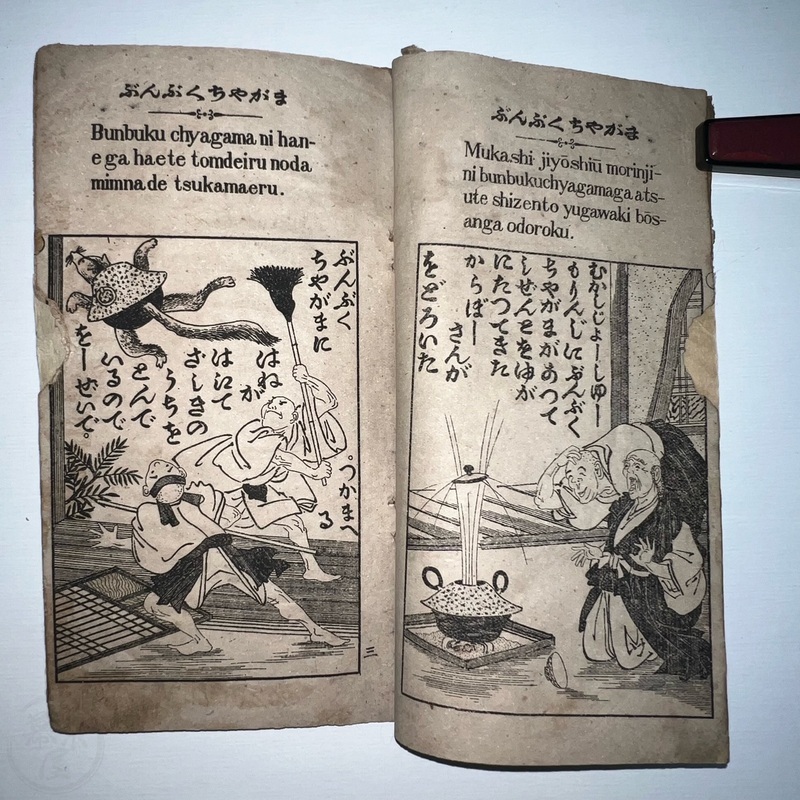 ぶんぶくちやがま
Mukashi jiyōshiū morinji-
ni bunbukuchyagamaga ats-
ute shizento yugawaki bōs-
anga odoroku.
むかしじよーしゆー
もりんじにぶんぶく
ちやがまがあつて
しぜんとをゆが
にたつてきた
からぼー
さんが
をどろいた
ぶんぶくちやがま
Bunbuku chyagama ni han-
e ga haete tomdeiru noda
mimna de tsukamaeru.
ぶんぶく
ちやがまに
はねが
はえて
ざしきの
うちを
とんで
いるので
をーぜいで。
。つかまへ
る
三